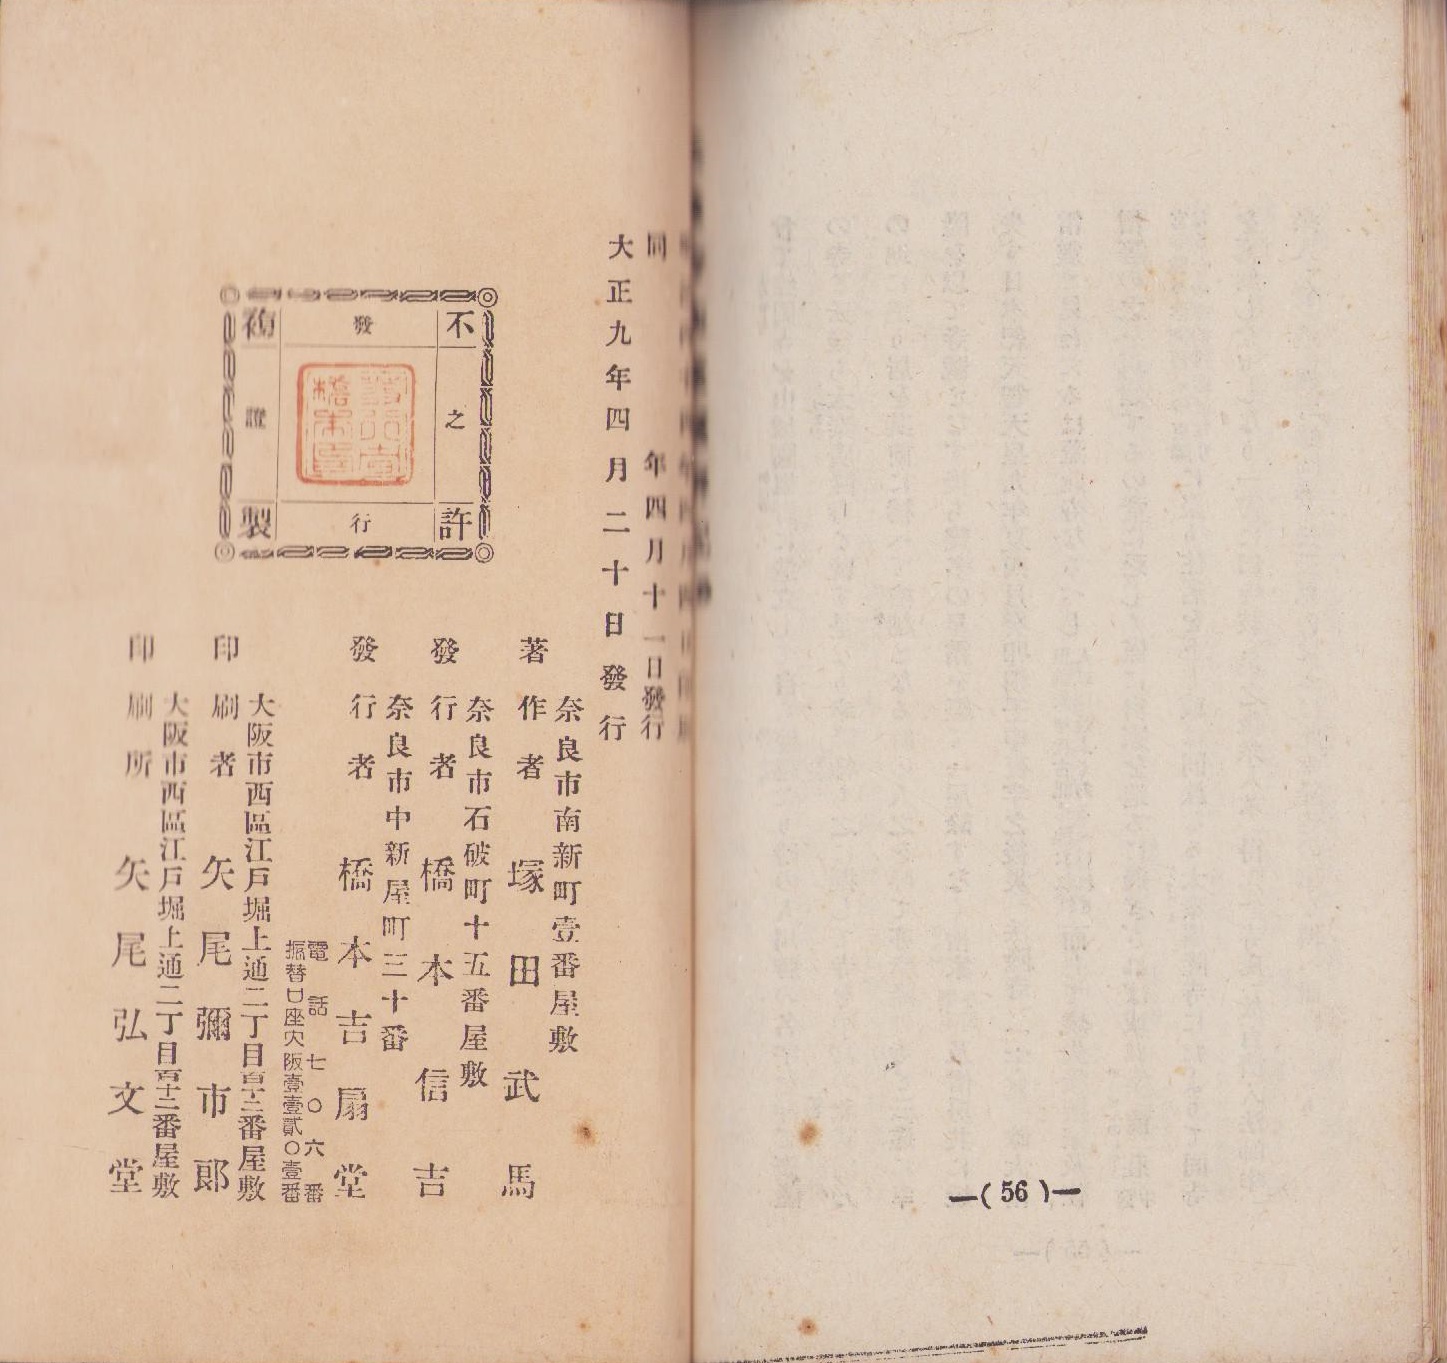 同　年四月十一日發行
大正九年四月二十日發行
不許
之
發行
證
複製
奈良市南新町壹番屋敷
著作者　塚田武馬
奈良市石破町十五番屋敷
發行者　橋本信吉
奈良市中新屋町三十番
發行者　橋本吉扇堂
電話七〇六番
振替口座大阪壹壹貳〇壹番
大阪市西區江戸堀上通二丁目百十二番屋敷
印刷者　矢尾彌市郎
大阪市西區江戸堀上通二丁目百十二番屋敷
印刷所　矢尾弘文堂
—(56)—